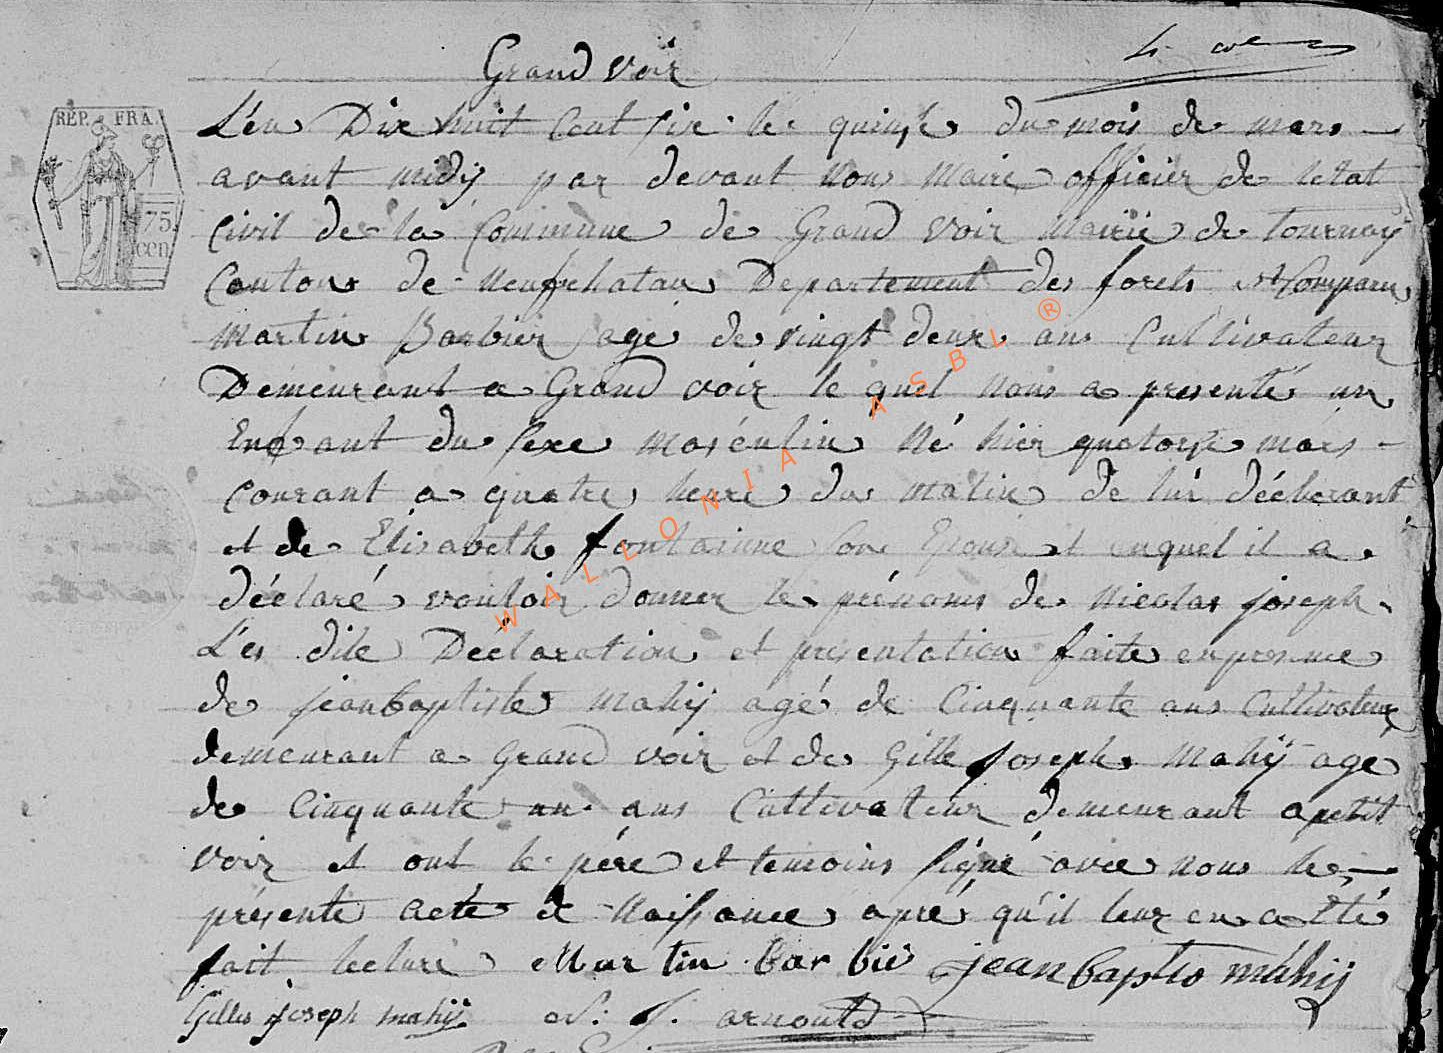 Grand voir
REP. FRA.
75.
cen
L'en Dix huit Cent six le quinze du mois de mars
avant midij par devant Nous Maire officier de letat
Civil de la Commune de Grand Voir Mairie de tournay
Canton de Neufchatau Departement des forets est Comparu
Martin Barbier age de vingt deux ans Cultivateur
Demeurant a Grand voir le quel Nous a presenté un
Enfant du sexe masculin Né hier quatorze mars
Courant a quatre heure du matin de lui déclarant
et de Elisabeth fontainne son Epouse et auquel il a
déclaré vouloir donner le prénoms de Nicolas joseph
L'es dite Déclaration et presentation faite en presence
de jean baptiste Mahij agé de Cinquante ans Cultivateur
demeurant a Grand voir et de Gille joseph Mahij age
de Cinquante un ans Cultivateur demeurant a petit
voir et ont le pére et temoins signé avec nous le
présente acte de Naissance apré qu'il leur en a étté
fait lecture Martin barbié jean bapto mahij
Gilles joseph mahij N: J. arnould
WALLONIA ASBL ®